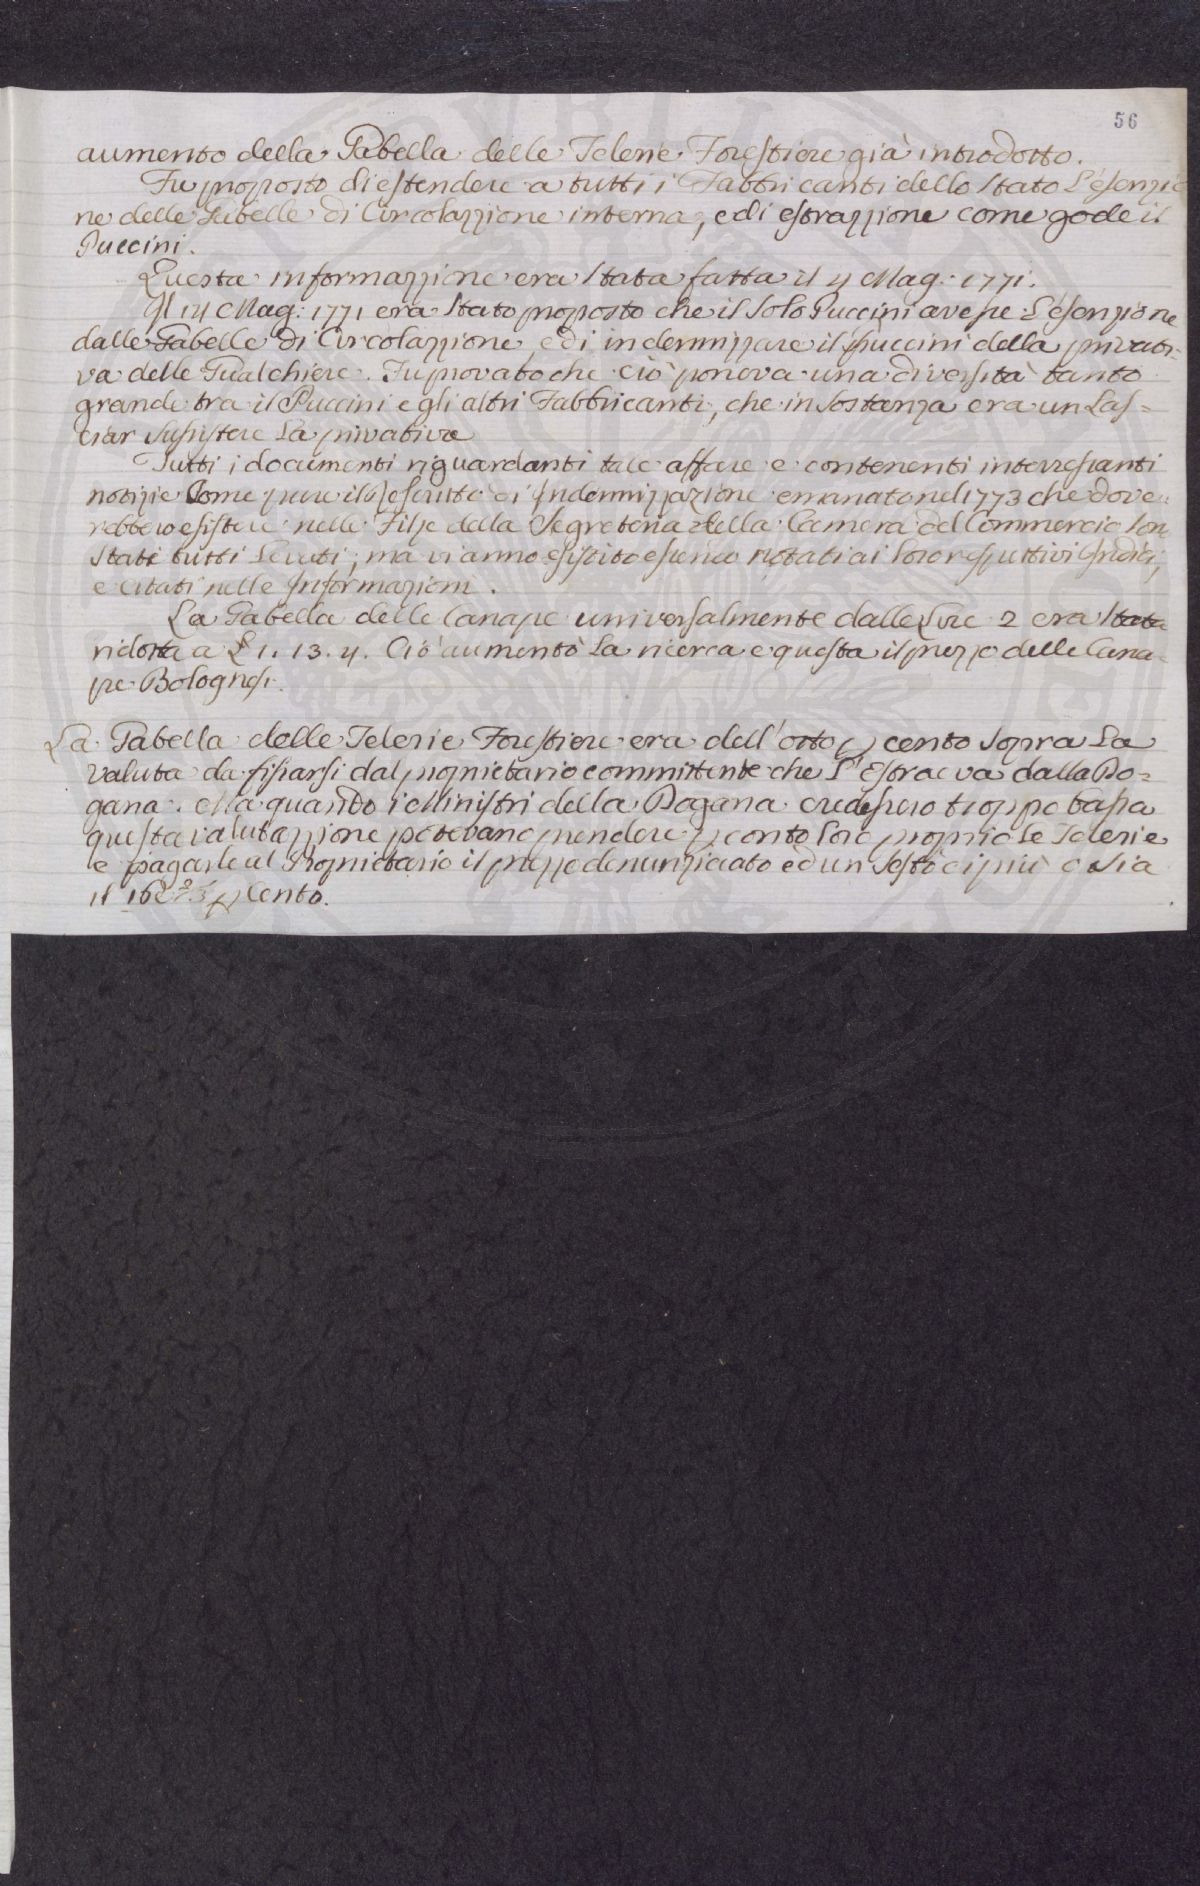 56
aumento della Gabella delle Telerie Forestiere già introdotto.
Fu proposto di estendere a tutti i Fabbricanti dello Stato L'esenzio
ne delle Gabelle di Circolazzione interna, e di estrazzione come gode il
Puccini.
Questa informazzione era Stata fatta il 4 Mag: 1771.
Il 14 Mag: 1771 era Stato proposto che il Solo Puccini avesse L'esenzione
dalle Gabelle di Circolazzione, e di indennizzare il Puccini della privati-
va delle Gualchiere. Fu provato che ciò poneva una diversità tanto
grande tra il Puccini e gli altri Fabbricanti, che in Sostanza era un Las=
ciar Sussistere La privativa
Tutti i documenti riguardanti tale affare e contenenti interressanti
notizie Come pure il Rescritto di Indennizzazione emanato nel 1773 che dove=
rebbero esistere nelle Filze della Segreteria della Camera del Commercio Son
Stati tutti Levati; ma vi anno esistito essendo notati ai Loro respettivi Indici,
e citati nelle Informazioni.
La Gabella delle Canape universalmente dalle Lire 2 era Stata
ridotta a £ 1. 13. 4. Ciò aumentò La ricerca e questa il prezzo delle Cana=
pe Bolognesi.
La Gabella delle Telerie Forestiere era dell'otto p cento Sopra La
valuta da fissarsi dal proprietario committente che L'Estraeva dalla Do=
gana. Ma quando i Ministri della Dogana credessero troppo bassa
questa valutazzione potevano prendere p conto Loro proprio le Telerie
e pagarle al Proprietario il prezzo denunziato ed un Sesto di più o Sia
il 16 2/3 p Cento.